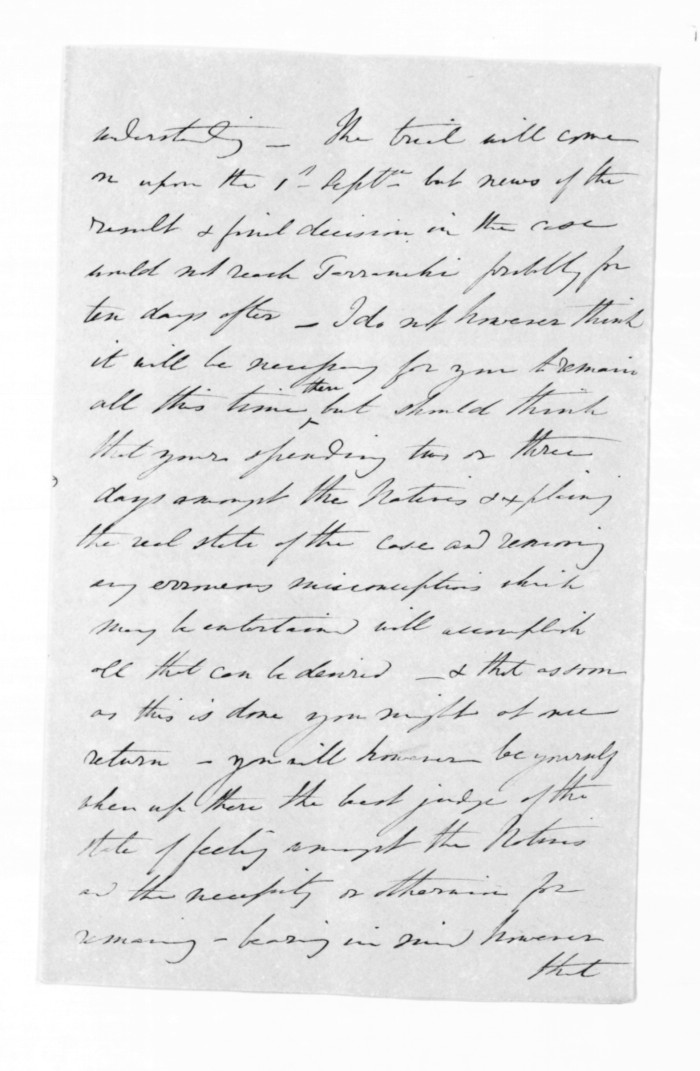 understanding — The trial will come
on upon the 1st Septr but news of the
result & final decision in the case
would not reach Tarranaki probably for
ten days after — I do not however think
it will be necessary for you to remain
all this time there but should think
that your spending two or three
days amongst the Natives & explaining
the real state of the case and removing
any erroneous misconceptions which
may be entertained will accomplish
all that can be desired — & that as soon
as this is done you might at once
return — you will however be yourself
when up there the best judge of the
state of feeling amongst the Natives
and the necessity or otherwise for
remaining — bearing in mind however
that